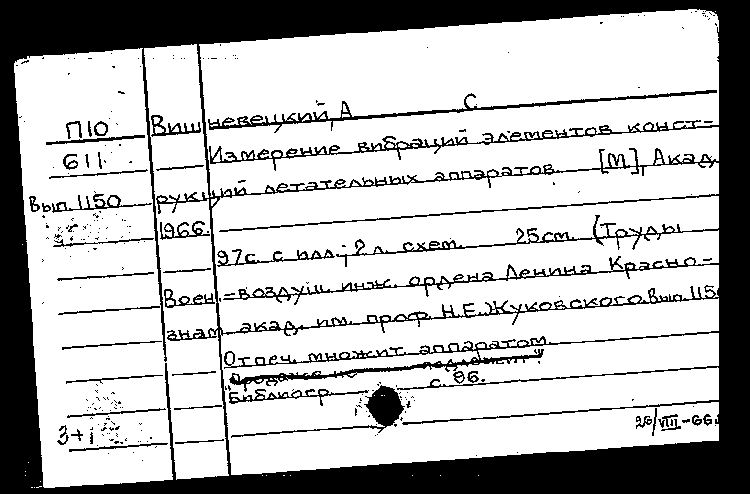 П10 Вишневецкий, А С
611 Измерение вибраций элементов конст-
Вып. 1150 рукций летательных аппаратов. [М], Акад,
1966.
97с. с илл.; 2 л. схем. 25см. (Труды
Воен.-воздуш. инж. ордена Ленина Красно-
знам. акад. им. проф. Н.Е. Жуковского. Вып. 1150
Отпеч. множит аппаратом.
"Продаже не подлежит".
Библиогр. с. 96.
3+1
26/VIII-66